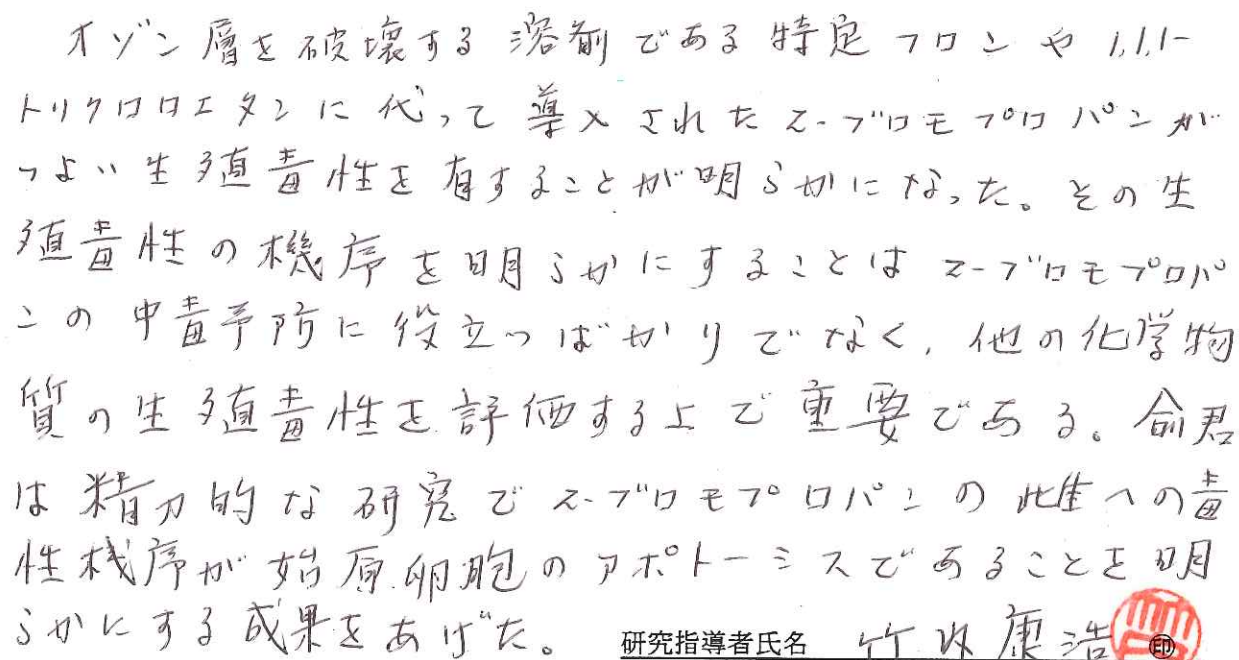 オゾン層を破壊する溶剤である特定フロンや1,1,1-
トリクロロエタンに代って導入された2-ブロモプロパンが
つよい生殖毒性を有することが明らかになった。その生
殖毒性の機序を明らかにすることは2-ブロモプロパ
ンの中毒予防に役立つばかりでなく、他の化学物
質の生殖毒性を評価する上で重要である。兪君
は精力的な研究で2-ブロモプロパンの雌への毒
性機序が始原卵胞のアポトーシスであることを明
らかにする成果をあげた。
研究指導者氏名 竹内康浩 印